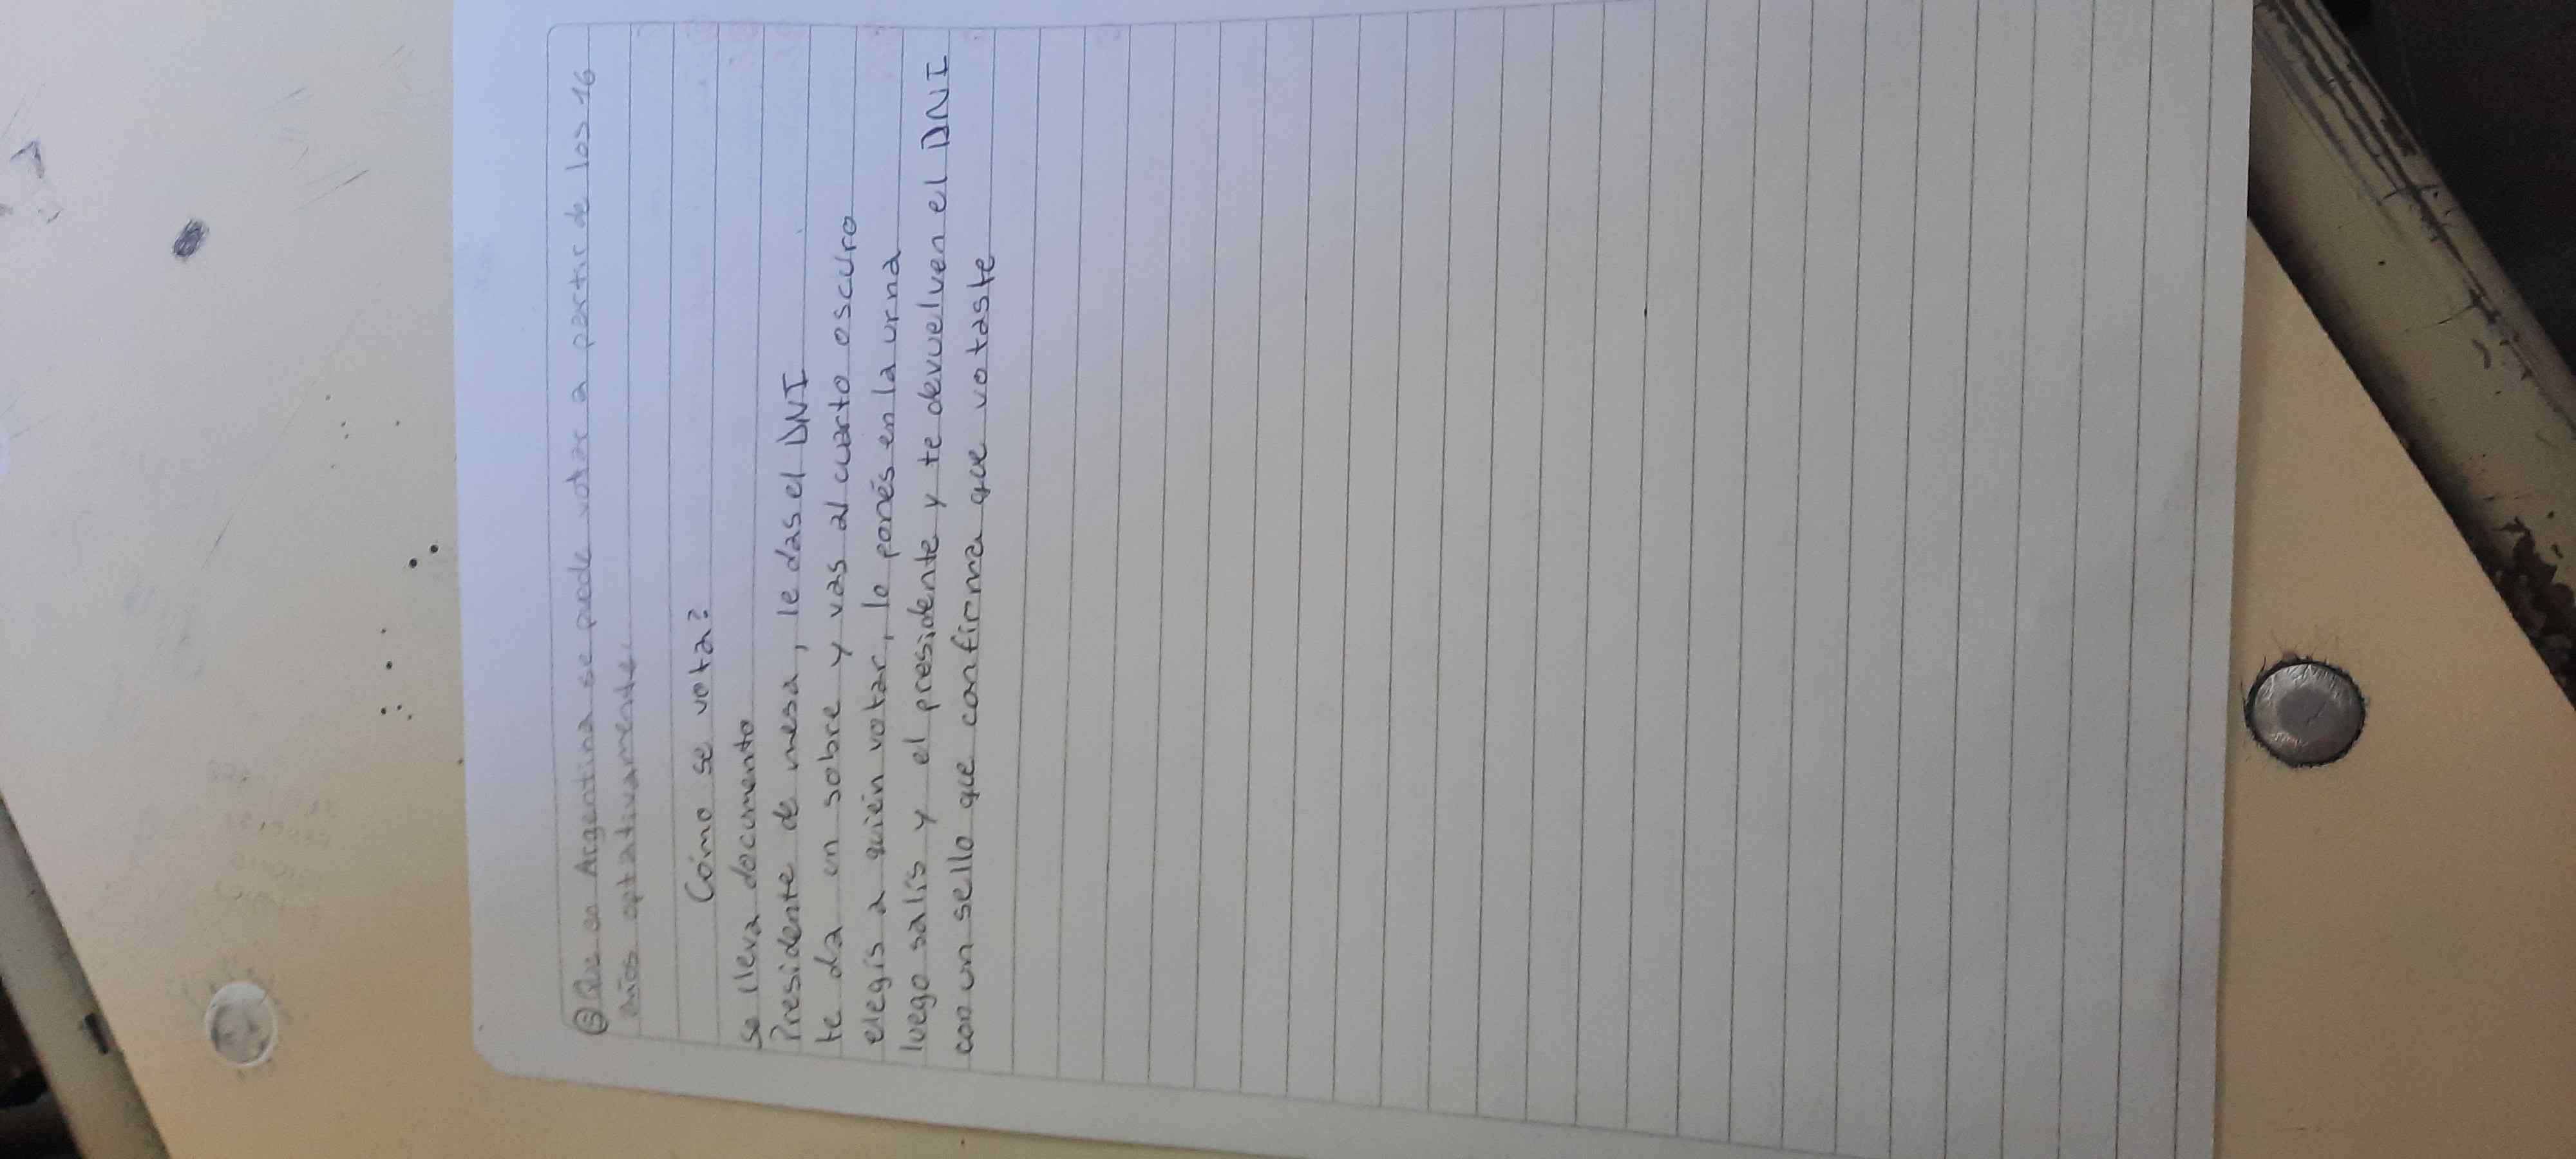 ⑤ Que en Argentina se puede votar a partir de los 16
años optativamente.
Cómo se vota?
Se lleva documento
Presidente de mesa, le das el DNI
te da un sobre y vas al cuarto oscuro
elegís a quién votar, lo ponés en la urna
luego salís y el presidente y te devuelven el DNI
con un sello que confirma que votaste